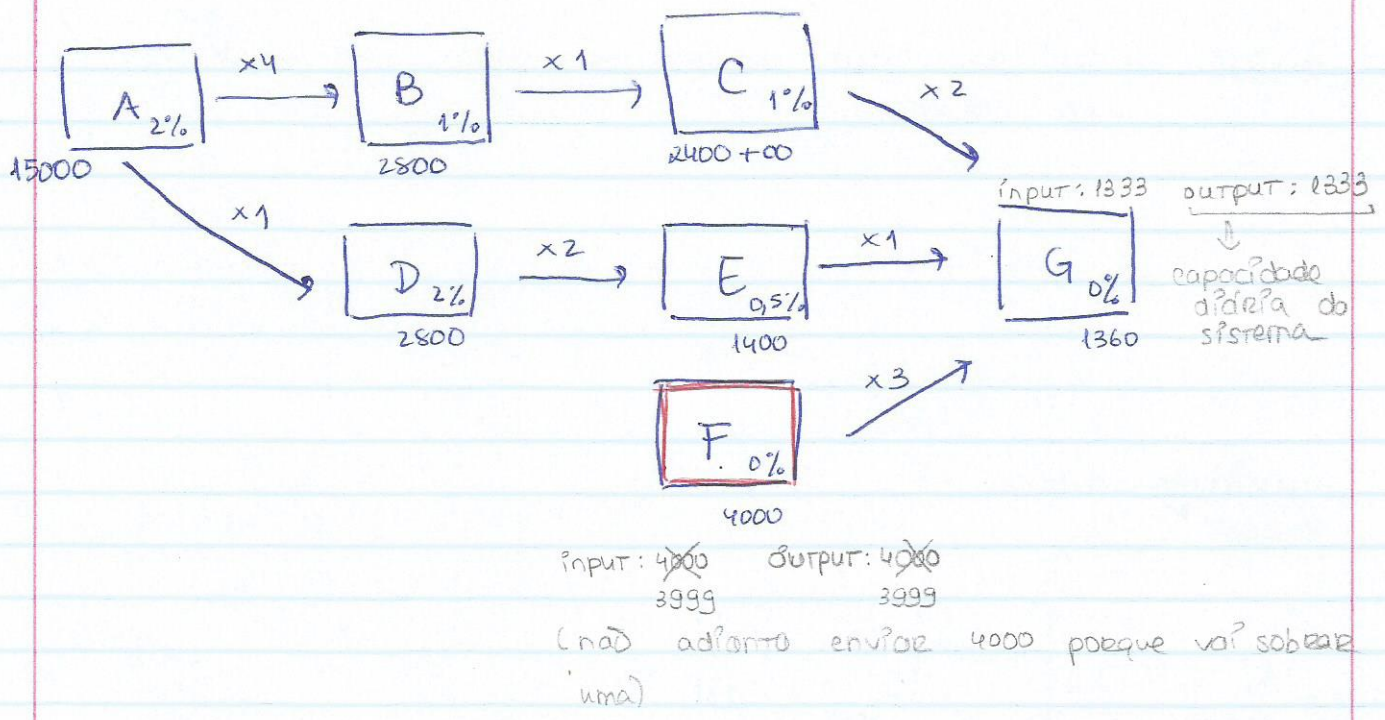 A 2%
15000
x4
B 1%
2800
x1
C 1%
2400 +00
x2
x1
D 2%
2800
x2
E 0,5%
1400
x1
input: 1333 output: 1333
G 0%
1360
capacidade
diária do
sistema
F. 0%
4000
x3
input: 4000 output: 4000
3999 3999
(não adianta enviar 4000 porque vai sobrar
uma)